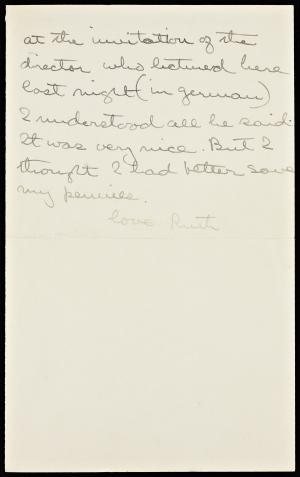 at the invitation of the
director who lectured here
last night (in german)
I understood all he said.
It was very nice. But I
thought I had better save
my pennies.
love Ruth